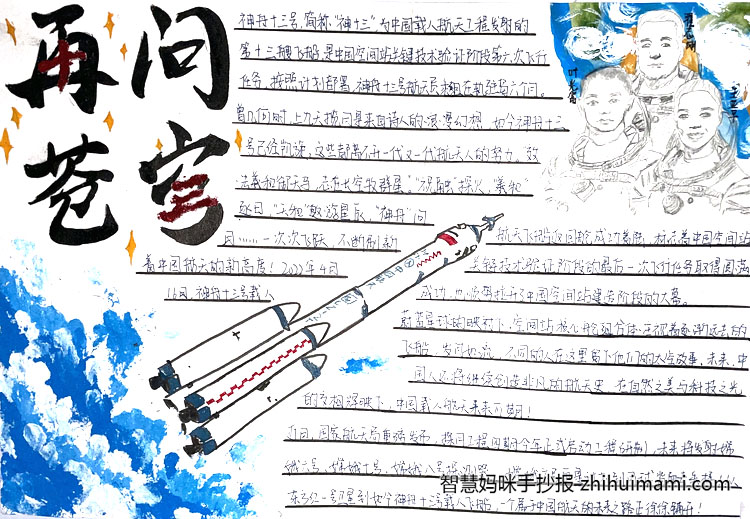 再问
苍穹
神舟十三号,简称“神十三”为中国载人航天工程发射的
第十三艘飞船,是中国空间站关键技术验证阶段第六次飞行
任务,按照计划部署,神舟十三号航天员乘组在轨驻留六个月。
曾几何时,上九天揽月是来自诗人的浪漫幻想,如今神舟十三
号已经凯旋,这些都离不开一代又一代航天人的努力。“敢
法羲和御天马,志在长空牧群星。”“祝融”探火,“羲和”
逐日,“天和”遨游星辰,“神舟”问
月……一次次飞跃,不断刷新
着中国航天的新高度!2022年4月
16日,神舟十三号载人
航天飞船返回舱成功着陆,标志着中国空间站
关键技术验证阶段的最后一次飞行任务取得圆满
成功,也
了中国空间站建造阶段的大幕。
蔚蓝星球的映衬下,空间站核心舱组合体
飞船,发问
不同的人在这里留下他们的太空故事,未来,中
国人必将继续创造非凡的航天史,在自然之美与科技之光
的交相辉映下,中国载人航天未来可期!
近日,国家航天局重磅发布,探月工程四期今年正式启动工程研制,未来将发射嫦
娥六号、嫦娥七号、嫦娥八号
东方红一号卫星到如今神舟十三号载人飞船,一个属于中国航天的未来之路正徐徐铺开!
叶光富
王亚平
中国航天
智慧妈咪手抄报-zhihuimami.com